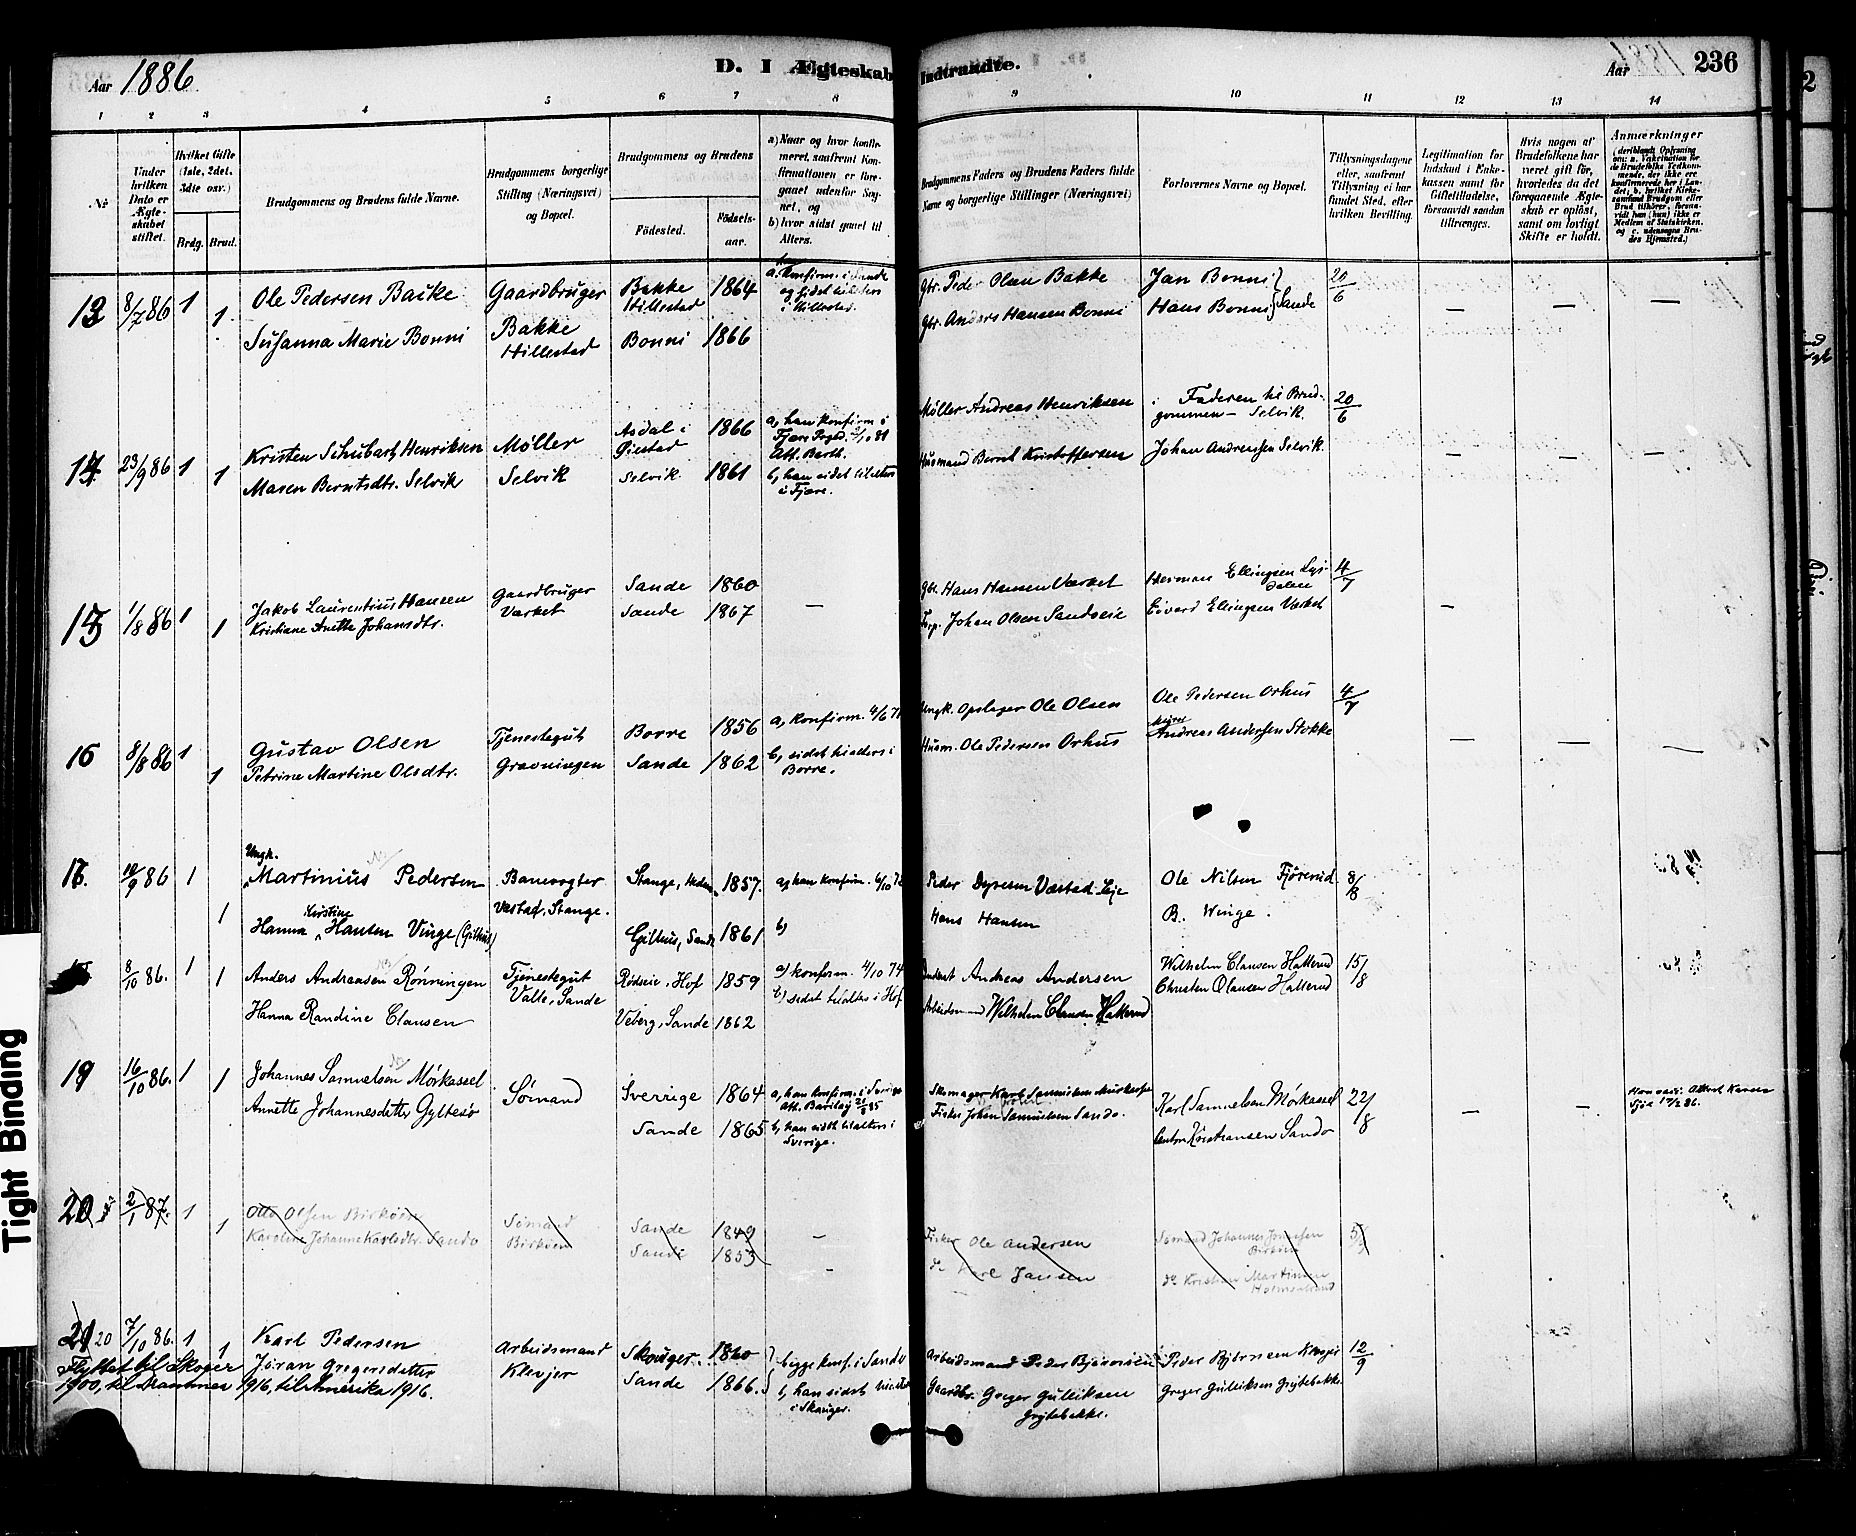 Aar 1886.
D. I Ægteskab Indtraadte.
Aar
236
1 2 3 4 5 6 7 8 9 10 11 12 13 14
Nr.
Under hvilken Dato er Ægteskabet stiftet.
Hvilket Gifte (1ste, 2det, 3die osv.)
Brdg.
Brud.
Brudgommens og Brudens fulde Navne.
Brudgommens borgerlige Stilling (Næringsvei) og Bopæl.
Brudgommens og Brudens
Fødested.
Fødselsaar.
a) Naar og hvor konfirmeret, saafremt Konfirmationen er foregaaet udenfor Sognet, og
b) hvor sidst gaaet til Alters.
Brudgommens Faders og Brudens Faders fulde Navne og borgerlige Stillinger (Næringsvei)
Forlovernes Navne og Bopæl.
Tillysningsdagene eller, saafremt Tillysning ei har fundet Sted, efter hvilken Bevilling.
Legitimation for Indskud i Enkekassen samt for Giftetilladelse, forsaavidt saadan tiltrænges.
Hvis nogen af Brudefolkene har været gift før, hvorledes da det foregaaende Ægteskab er opløst, samt om lovligt Skifte er holdt.
Anmærkninger
13 8/7 86 1 1. Ole Pedersen Bakke Gaardbruger Bakke Hillestad 1864 a. konfirm. i Sande og sidst tilalters i Hillestad. Gbr. Peder Olsen Bakke Jan Bonni 20/6
Susanna Marie Bonni Bakke Hillestad Bonni 1866 Gbr. Anders Hansen Bonni Hans Bonni } Sande — — —
14 23/9 86 1 1 Kristen Schubart Henriksen Møller Asdal i Øiestad 1866 a, han konfirm i Fjære Møller Andreas Henriksen Faderen til Brudgommen — Selvik 20/6
Maren Berntsdtr. Selvik Selvik Selvik 1861 b, han sidst tilalters i Fjære. Husmand Bernt Kristoffersen Johan Andreassen Selvik. — — —
15 1/8 86 1 1 Jakob Laurentius Hansen Gaardbruger Sande 1860 — Gbr. Hans Hansen Værket Herman Ellingsen 4/7
Kristiane Anette Johansdtr. Værket Sande 1867 Johan Olsen Sandveie Eivard Ellingsen Værket —
16 8/8 86 1 1 Gustav Olsen Tjenestegut Borre 1856 a, konfirm. Ungk. Opslager Ole Olsen Ole Pedersen Orhus 4/7
Petrine Martine Olsdtr. Gravningen Sande 1862 b, sidst tilalters i Borre. Husm. Ole Pedersen Orhus Andreas Andersen Stokke — — —
17. 12/9 86 1 1 Ungk. Martinius Pedersen Banevogter Stange, 1857. a, han konfirm. Peder Væstad Ole Nilsen 8/8
Hanna Kirstine Hansen Vinge (Gilhus) Væstad, Stange. Gilhus, Sande 1861 b) Hans Hansen B. Winge.
18 8/10 86. 1 1 Anders Andreasen Rønningen Tjenestegut Rødseie, Hof 1859 a) konfirm. 4/10 74 Andreas Andersen Wilhelm Clausen Hallerud 15/8
Hanna Randine Clausen Valle, Sande Veberg, Sande 1862 b) sidst tilalters i Hof Arbeidsmand Wilhelm Clausen Hallerud Christen Olausen Hallerud
19 16/10 86. 1 1 Johannes Samuelsen Mørkassel Sømand Sverrige 1864 a, han konfirm. i Sverige Skomager Karl Samuelsen Karl Samuelsen Mørkassel 22/8
Annette Johannesdatter Gyltesø Sande 1865 b, han sidst tilalters i Sverige. Fisker Johan Samuelsen Sando. Kristiansen Sando — —
20 2/1 87. 1 1 Otto Olsen Birkøen Sømand Sande 1849 — Fisker Ole Andersen Sømand Johannes Birkøen
Karoline Johanne Karlsdtr. Sando Birkøen Sande 1853 — do Karl Jansen do Kristian Martinsen Holmestrand
21 20 7/10 86. 1 1 Karl Pedersen Arbeidsmand Skouger 1860 } begge konf. i Sande Arbeidsmand Peder Bjørnsen Peder Bjørnsen Klevjer 12/9
Jøran Gregersdatter Klevjer Sande 1866. b, han sidst tilalters i Skauger. Gaardbr. Greger Gulliksen Grytebakke. Greger Gulliksen Grytebakke.
Flyttet til Skoger 1900, til Drammen 1916, til Amerika 1916.
Tight Binding